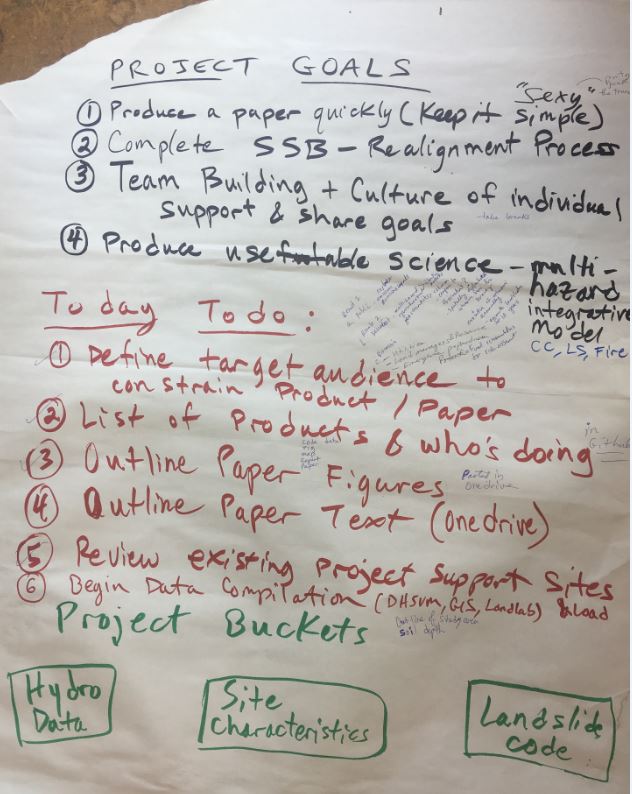 PROJECT GOALS
"Sexy"
① Produce a paper quickly (Keep it simple)
② Complete SSB - Realignment Process
③ Team Building + Culture of individual
support & share goals
- take breaks
④ Produce useable science - multi-
hazard
integrative
model
CC, LS, Fire
Today To do:
① Define target audience to
constrain Product / Paper
② List of Products & who's doing
in
Github
③ Outline Paper Figures
Posted in
Onedrive
④ Outline Paper Text (onedrive)
⑤ Review existing project support sites
⑥ Begin Data Compilation (DHSVM, GIS, Landlab) & load
Outline of study area
soil depth
Project Buckets
Hydro
Data
Site
Characteristics
Landslide
code